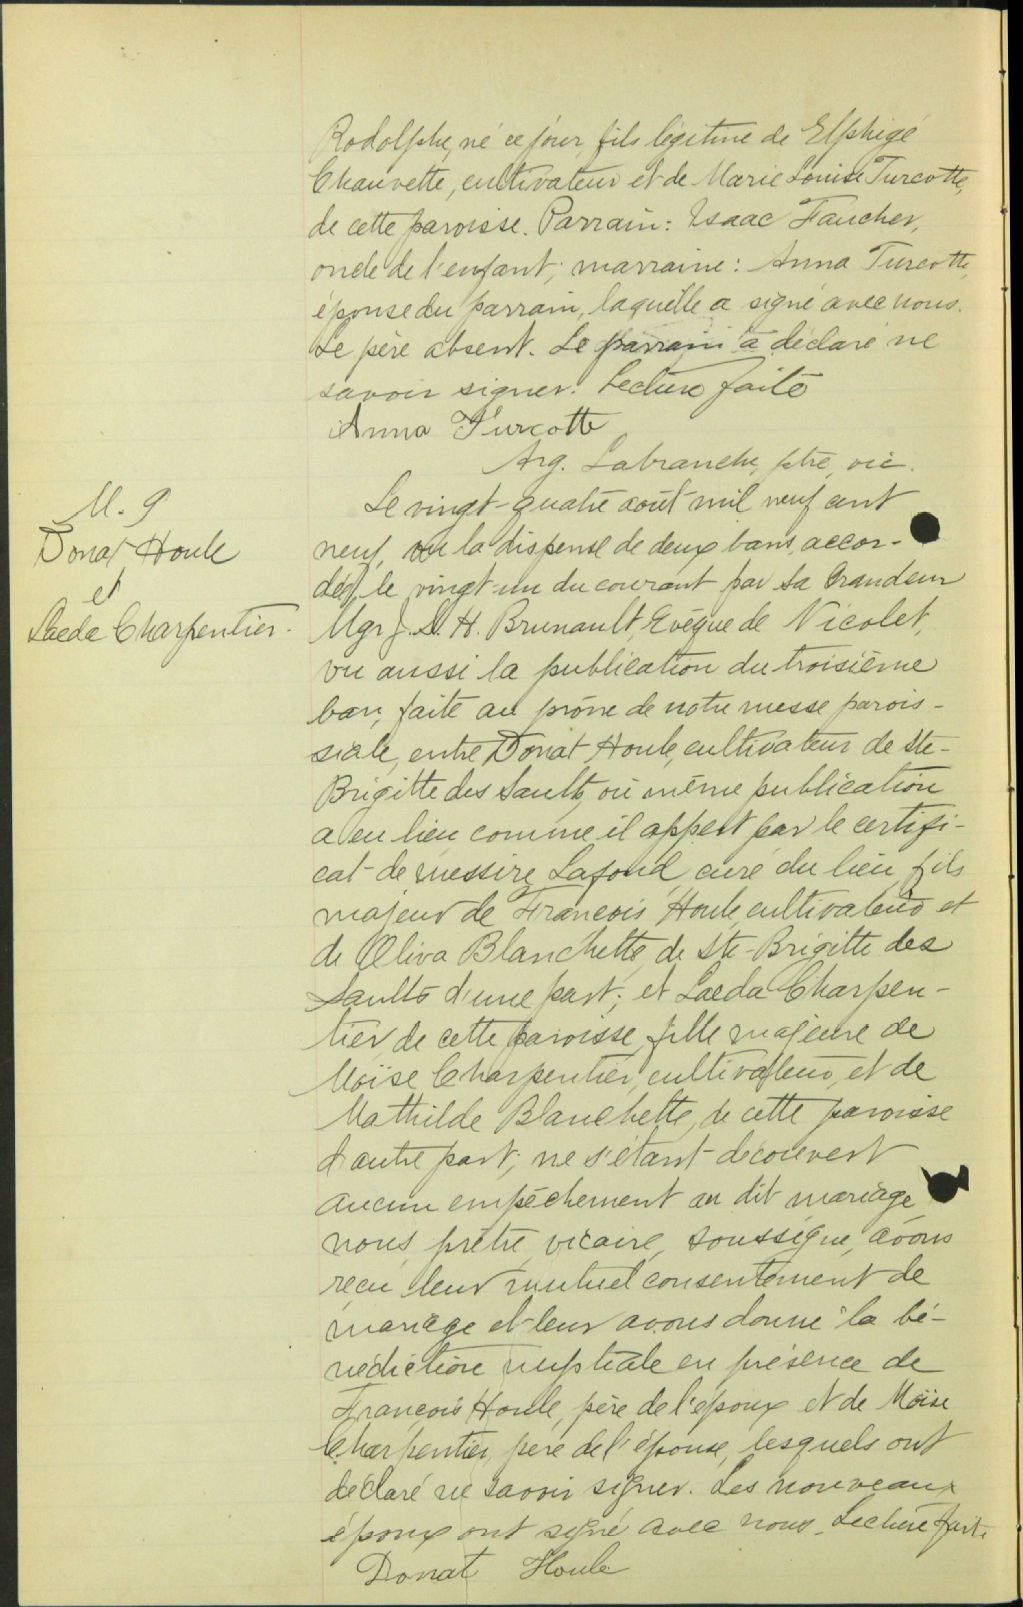 Rodolphe, né ce jour, fils légitime de Elphégé
Chauvette, cultivateur et de Marie Louise Turcotte,
de cette paroisse. Parrain: Isaac Faucher,
oncle de l'enfant; marraine: Anna Turcotte,
épouse du parrain, laquelle a signé avec nous.
Le père absent. Le parrain a déclaré ne
savoir signer. Lecture faite
Anna Turcotte
Arg. Labranche, ptre, vic.
M. 9
Donat Houle
et
Laeda Charpentier.
Le vingt-quatre août mil neuf cent
neuf, vu la dispense de deux bans accor-
dée, le vingt-un du courant par Sa Grandeur
Mgr J. S. H. Brunault, Evêque de Nicolet,
vu aussi la publication du troisième
ban, faite au prône de notre messe parois-
siale, entre Donat Houle, cultivateur de Ste-
Brigitte des Saults, où même publication
a eu lieu comme il appert par le certifi-
cat de messire Lafond curé du lieu, fils
majeur de François Houle cultivateur et
de Oliva Blanchette, de Ste-Brigitte des
Saults d'une part; et Laeda Charpen-
tier de cette paroisse, fille majeure de
Moïse Charpentier, cultivateur, et de
Mathilde Blanchette, de cette paroisse
d'autre part; ne s'étant découvert
aucun empêchement au dit mariage
nous, prêtre, vicaire, soussigné, avons
reçu leur mutuel consentement de
mariage et leur avons donné la bé-
nédiction nuptiale en présence de
François Houle, père de l'époux et de Moïse
Charpentier, père de l'épouse, lesquels ont
déclaré ne savoir signer. Les nouveaux
époux ont signé avec nous. Lecture faite
Donat Houle